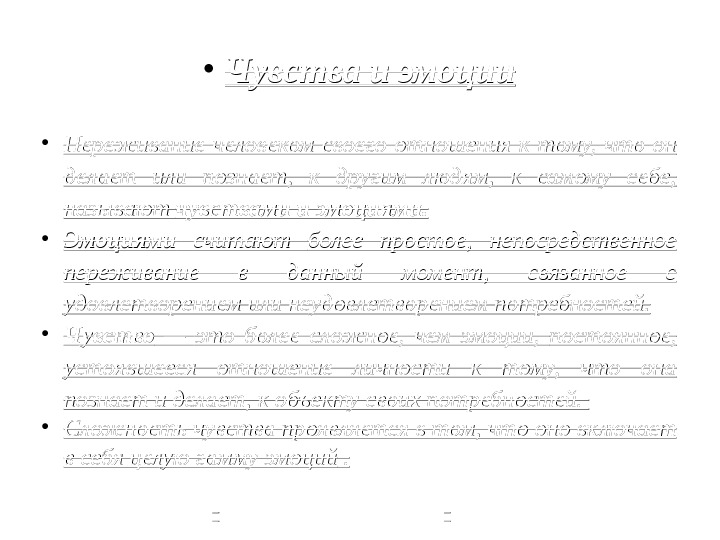 • Чувства и эмоции
• Переживание человеком своего отношения к тому, что он
делает или познает, к другим людям, к самому себе,
называют чувствами и эмоциями.
• Эмоциями считают более простое, непосредственное
переживание в данный момент, связанное с
удовлетворением или неудовлетворением потребностей.
• Чувство — это более сложное, чем эмоции, постоянное,
устоявшееся отношение личности к тому, что она
познает и делает, к объекту своих потребностей.
• Сложность чувства проявляется в том, что оно включает
в себя целую гамму эмоций .